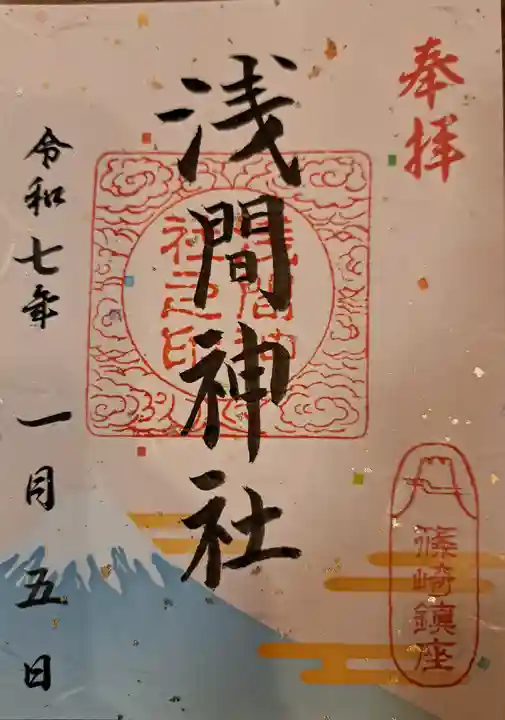 奉拝
篠崎鎮座
浅間神社
浅間神社之印
令和七年一月五日